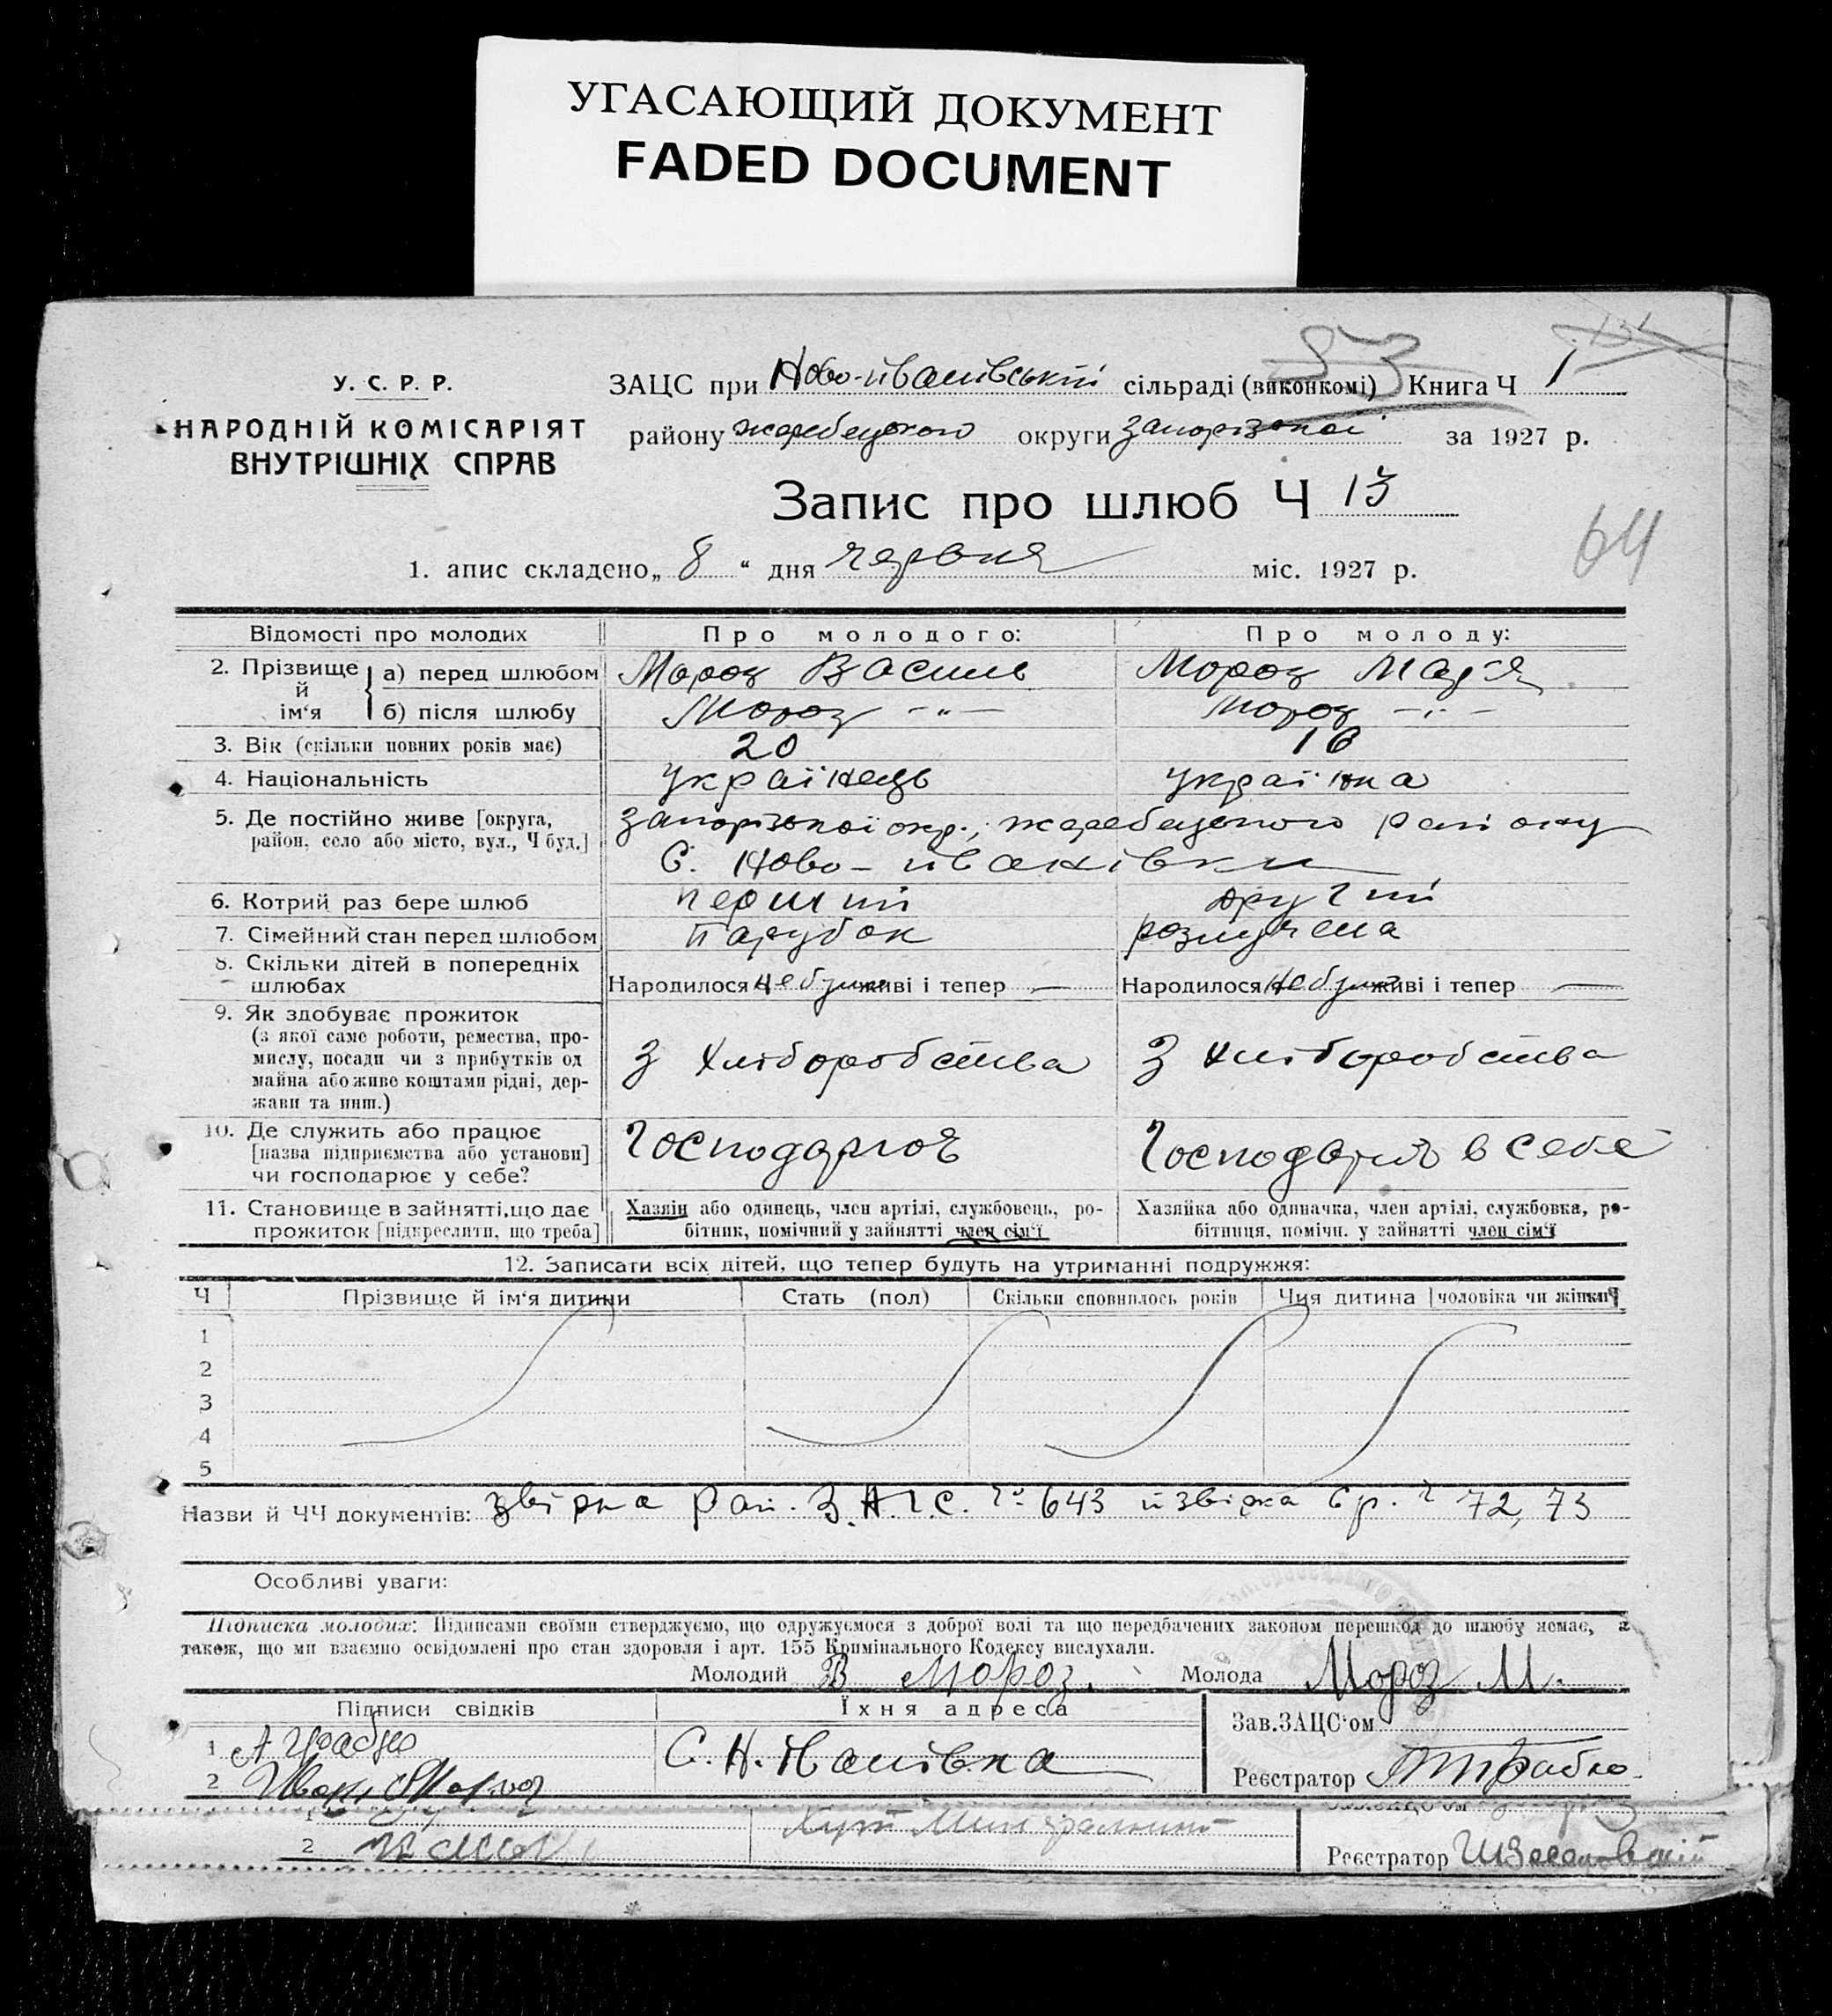 УГАСАЮЩИЙ ДОКУМЕНТ
FADED DOCUMENT
У. С. Р. Р.
НАРОДНІЙ КОМІСАРІЯТ
ВНУТРІШНІХ СПРАВ
53
ЗАЦС при Ново-іванівській сільраді (виконкомі) Книга Ч 1
району жеребецького округи запорізької за 1927 р.
Запис про шлюб Ч 13
64
1. апис складено „ 8 “ дня червня міс. 1927 р.
Відомості про молодих Про молодого: Про молоду:
2. Прізвище й ім‘я а) перед шлюбом Мороз Василь Мороз Мар'я
б) після шлюбу Мороз -"- Мороз -"-
3. Вік (скільки повних років має) 20 18
4. Національність українець українка
5. Де постійно живе [округа, район, село або місто, вул., Ч буд.] запорізької окр., жеребецького району
С. Ново-іванівки
6. Котрий раз бере шлюб перший другий
7. Сімейний стан перед шлюбом парубок розлучена
8. Скільки дітей в попередніх шлюбах Народилося не було живі і тепер — Народилося не було живі і тепер —
9. Як здобуває прожиток
(з якої саме роботи, ремества, про-
мислу, посади чи з прибутків од
майна або живе коштами рідні, дер-
жави та инш.)
З хліборобства З хліборобства
10. Де служить або працює
[назва підприємства або установи]
чи господарює у себе?
Господарює Господарює в себе
11. Становище в зайнятті, що дає
прожиток [підкреслити, що треба]
Хазяін або одинець, член артілі, службовець, ро-
бітник, помічний у зайнятті член сім‘ї
Хазяйка або одиначка, член артілі, службовка, ро-
бітниця, помічн. у зайнятті член сім‘ї
12. Записати всіх дітей, що тепер будуть на утриманні подружжя:
Ч Прізвище й ім‘я дитини Стать (пол) Скільки сповнилось років Чия дитина [чоловіка чи жінки]
1
2
3
4
5
Назви й ЧЧ документів: звірка Рай. З.А.Г.С. Ч 643 й звірка ср. ч 72, 73
Особливі уваги:
Підписка молодих: Підписами своїми стверджуємо, що одружуємося з доброї волі та що передбачених законом перешкод до шлюбу немає, а
також, що ми взаємно освідомлені про стан здоровля і арт. 155 Кримінального Кодексу вислухали.
Молодий В Мороз. Молода Мороз М.
Підписи свідків Їхня адреса
Зав.ЗАЦС‘ом
1
С. Н. Іванівка
2 Иван Мороз
Реєстратор
1
2
Хут
Реєстратор